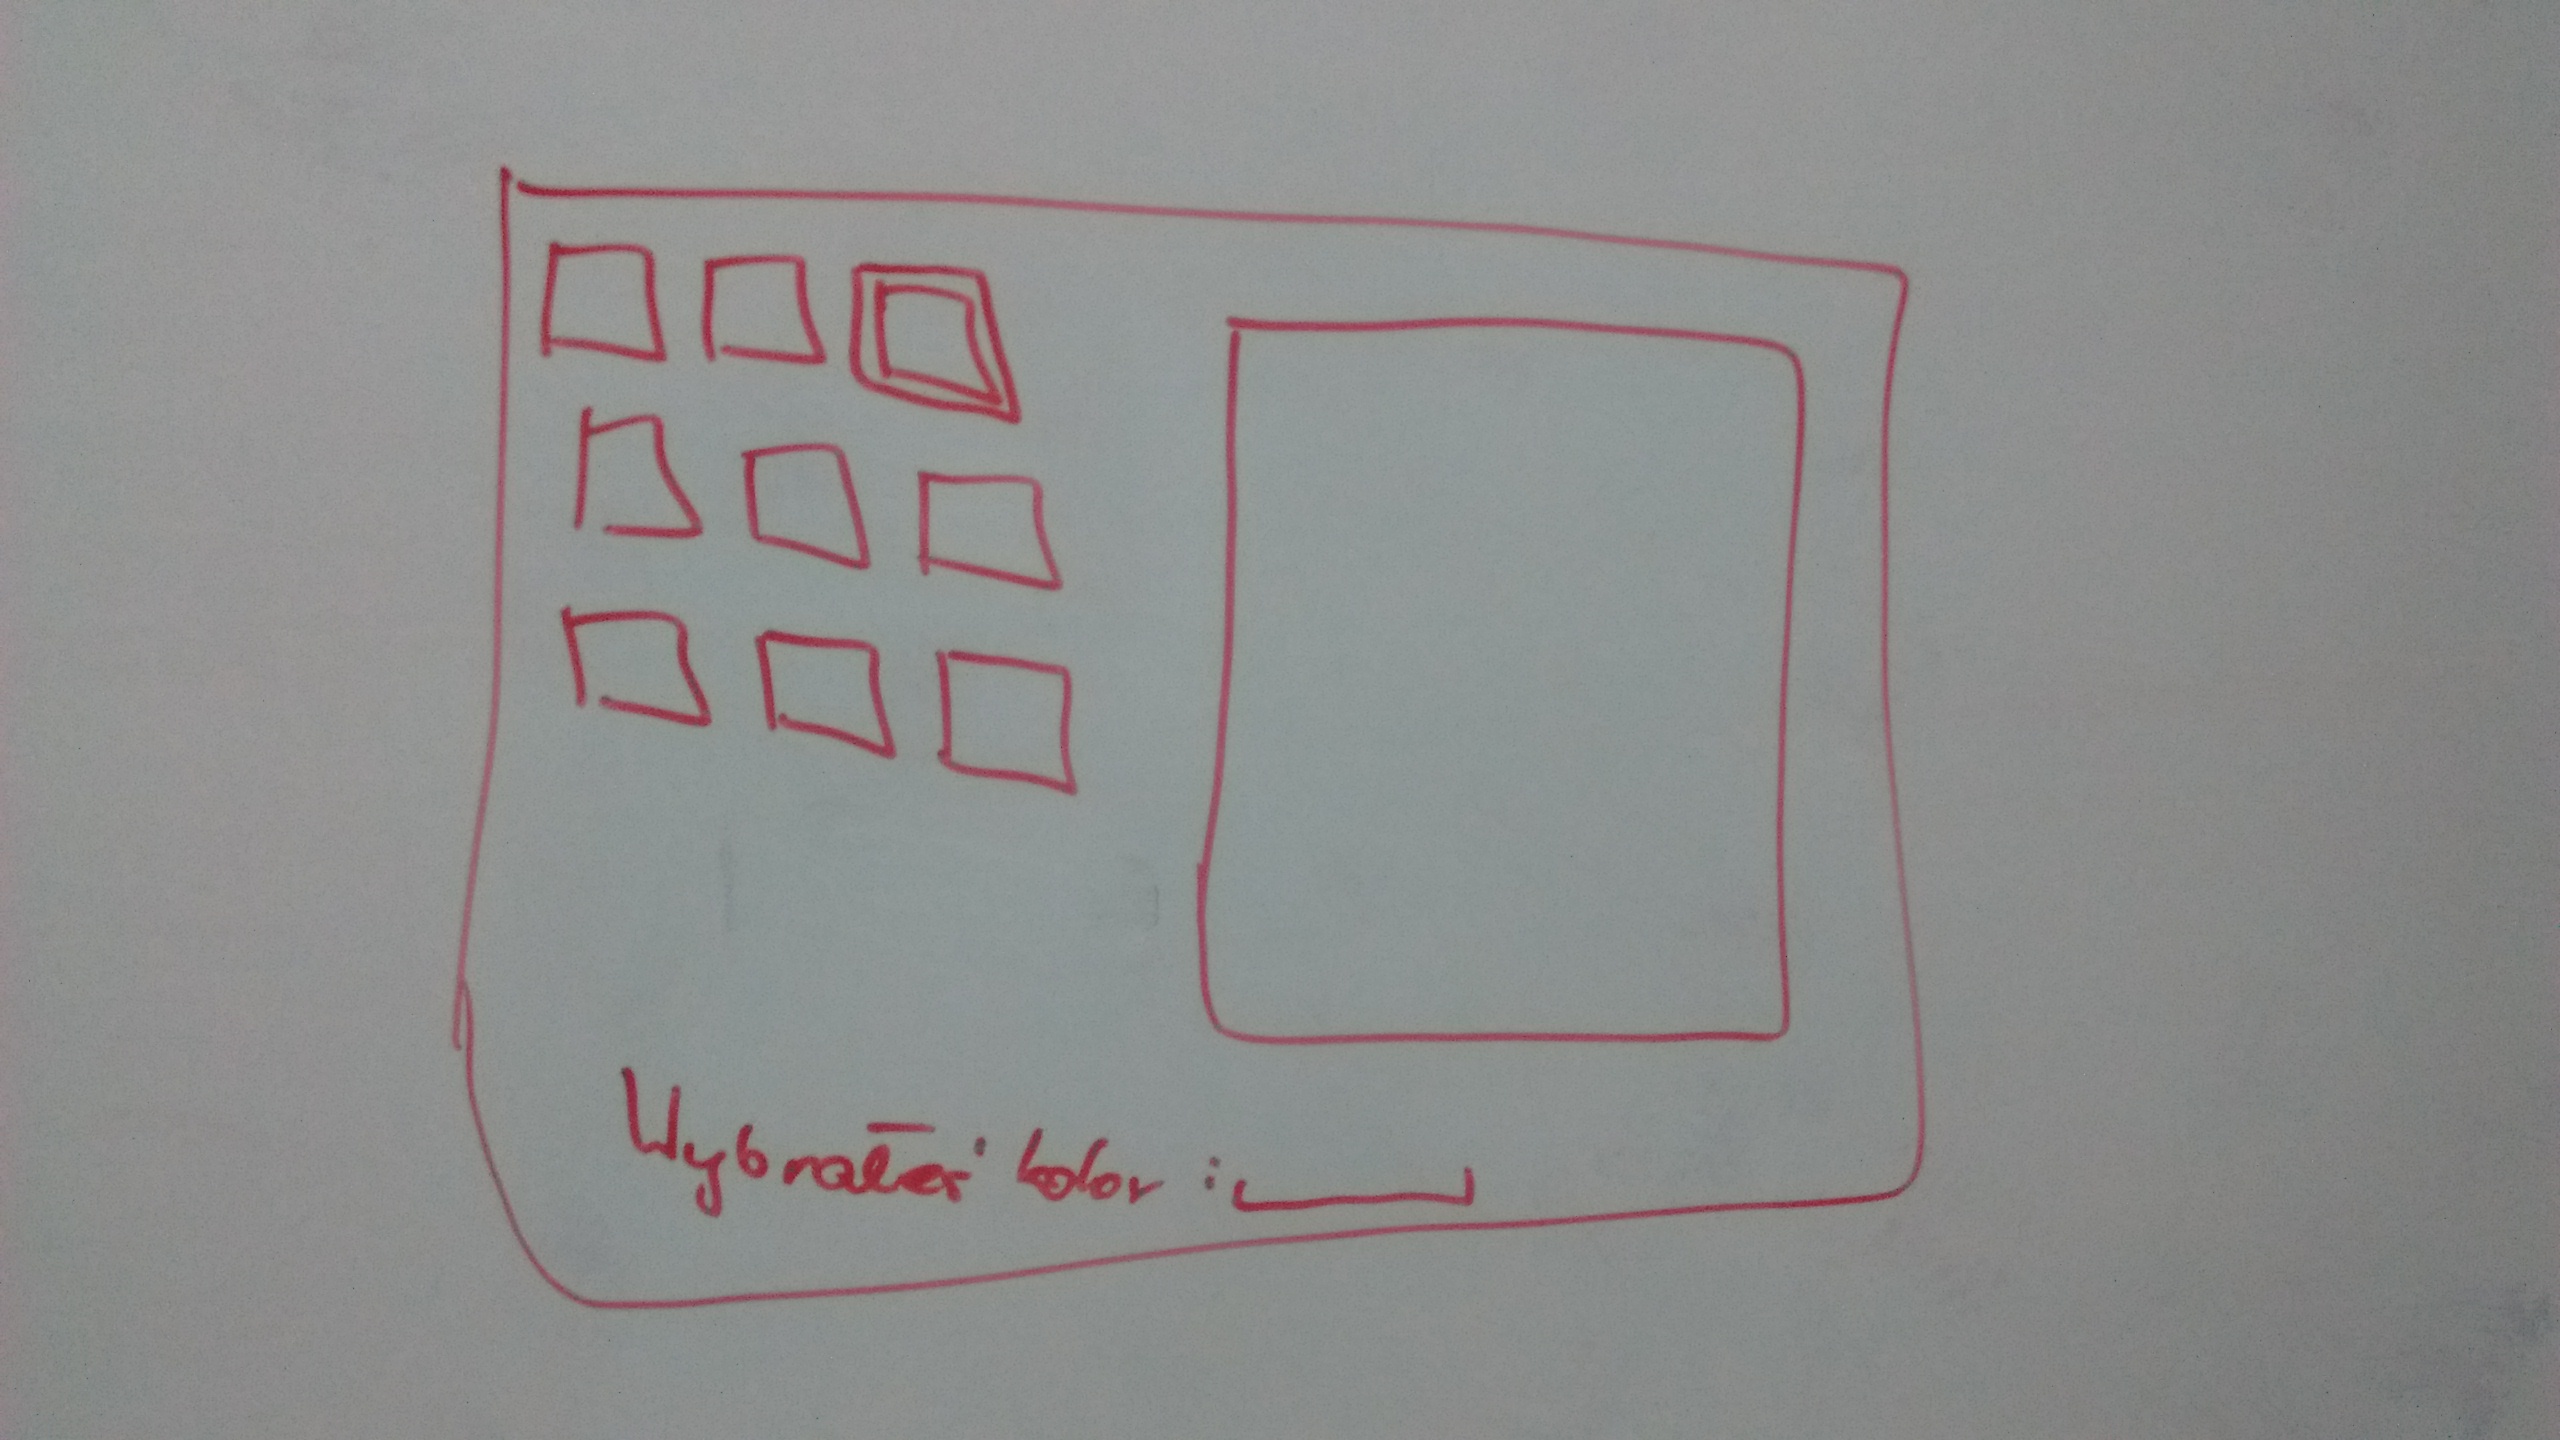 Wybrałeś kolor :